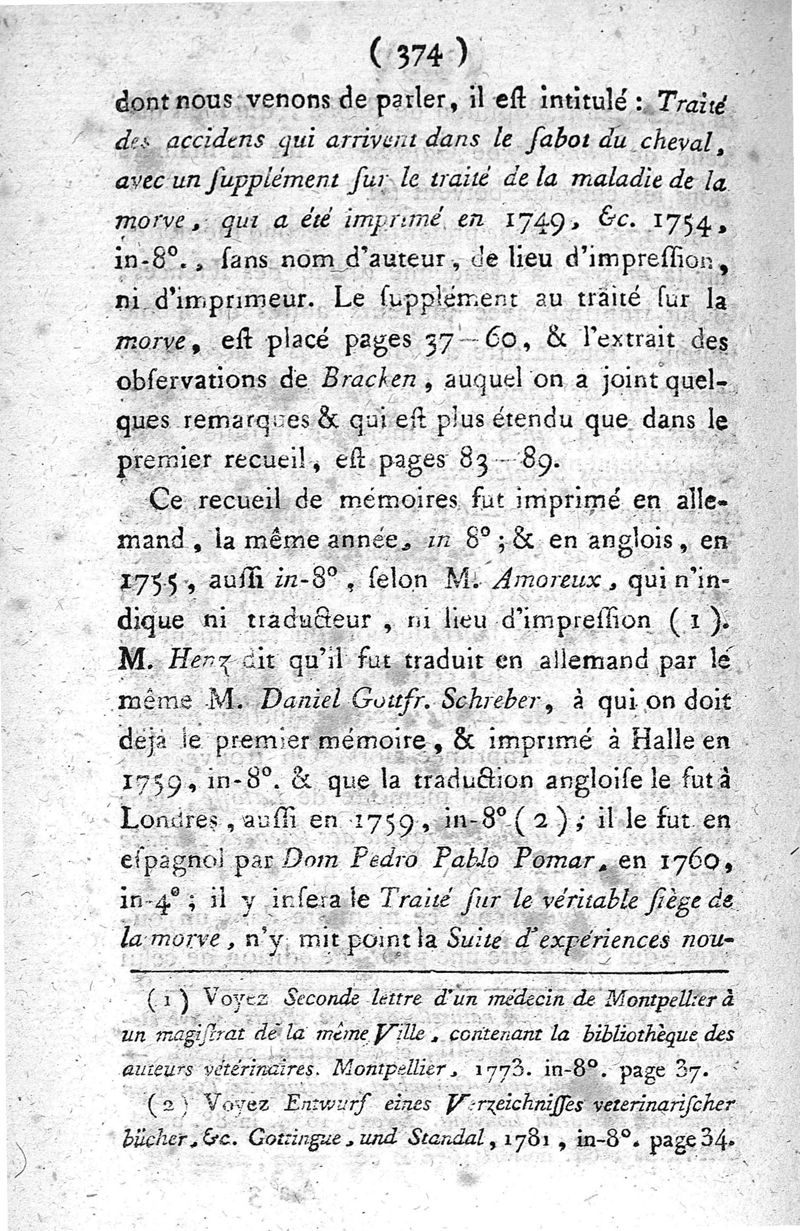 ( 374 )
dont nous venons de parler, il eſt intitulé : Traité
des accidens qui arrivent dans le ſabot du cheval,
avec un ſupplément ſur le traité de la maladie de la
morve, qui a été imprimé en 1749, &c. 1754,
in-8°., ſans nom d'auteur, de lieu d'impreſſion,
ni d'imprimeur. Le ſupplément au traité ſur la
morve, eſt placé pages 37 — 60, & l'extrait des
obſervations de Bracken, auquel on a joint quel-
ques remarques & qui eſt plus étendu que dans le
premier recueil, eſt pages 83 — 89.
Ce recueil de mémoires fut imprimé en alle-
mand, la même année, in 8° ; & en anglois, en
1755, auſſi in-8°, ſelon M. Amoreux, qui n'in-
dique ni traducteur, ni lieu d'impreſſion ( 1 ).
M. Henz dit qu'il fut traduit en allemand par le
même M. Daniel Gottfr. Schreber, à qui on doit
déja le premier mémoire, & imprimé à Halle en
1759, in-8°. & que la traduction angloiſe le fut à
Londres, auſſi en 1759, in-8° ( 2 ) ; il le fut en
eſpagnol par Dom Pedro Pablo Pomar, en 1760,
in-4° ; il y inſera le Traité ſur le véritable ſiège de
la morve, n'y mit point la Suite d'expériences nou-
( 1 ) Voyez Seconde lettre d'un médecin de Montpellier à
un magiſtrat de la même Ville, contenant la bibliothèque des
auteurs vétérinaires. Montpellier, 1773. in-8°. page 37.
( 2 ) Voyez Entwurf eines Verzeichniſſes veterinariſcher
bücher, &c. Gottingue, und Standal, 1781, in-8°. page 34.